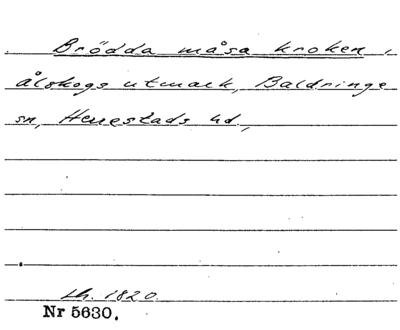 Brödda måsa kroken,
ålskogs utmark, Baldringe
sn, Herrestads hd.,
Lh. 1820.
Nr 5630.